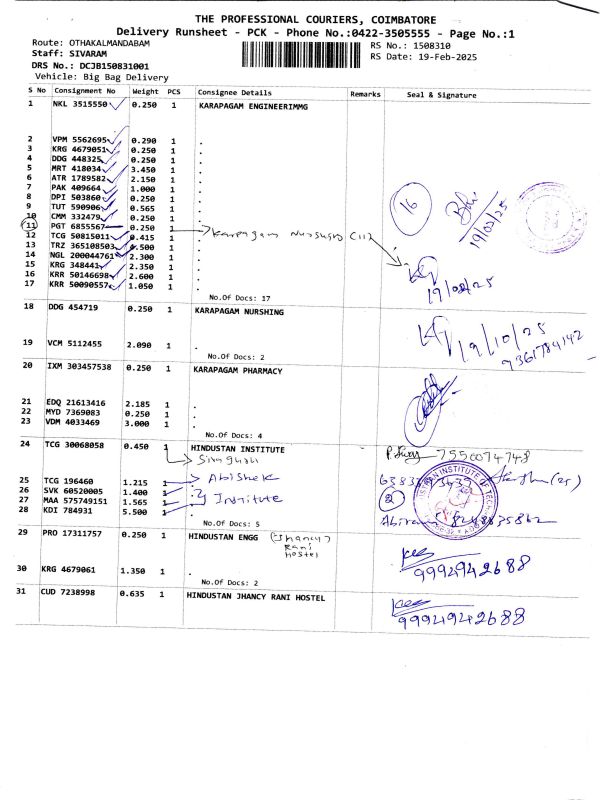 THE PROFESSIONAL COURIERS, COIMBATORE
Delivery Runsheet - PCK - Phone No.:0422-3505555 - Page No.:1
Route: OTHAKALMANDABAM RS No.: 1508310
Staff: SIVARAM RS Date: 19-Feb-2025
DRS No.: DCJB150831001
Vehicle: Big Bag Delivery
S No Consignment No Weight PCS Consignee Details Remarks Seal & Signature
1 NKL 3515550 0.250 1 KARAPAGAM ENGINEERIMMG
2 VPM 5562695 0.290 1 .
3 KRG 4679051 0.250 1 .
4 DDG 448325 0.250 1 .
5 MRT 418034 3.450 1 .
6 ATR 1789582 2.150 1 .
7 PAK 409664 1.000 1 . 16
8 DPI 503860 0.250 1 .
9 TUT 590906 0.565 1 . 19/02/25
10 CMM 332479 0.250 1 .
11 PGT 6855567 0.250 1 .
12 TCG 50815011 0.415 1 . Karapagam Nursing (11)
13 TRZ 365108503 0.500 1 .
14 NGL 200044761 2.300 1 .
15 KRG 348441 2.350 1 .
16 KRR 50146698 2.600 1 .
17 KRR 50090557 1.050 1 . 19/02/25
No.Of Docs: 17
18 DDG 454719 0.250 1 KARAPAGAM NURSHING
19/10/25
19 VCM 5112455 2.090 1 . 7361784142
No.Of Docs: 2
20 IXM 303457538 0.250 1 KARAPAGAM PHARMACY
21 EDQ 21613416 2.185 1 .
22 MYD 7369083 0.250 1 .
23 VDM 4033469 3.000 1 .
No.Of Docs: 4
24 TCG 30068058 0.450 1 HINDUSTAN INSTITUTE 7550074748
25 TCG 196460 1.215 1 Abishek
26 SVK 60520005 1.400 1 . 2
27 MAA 575749151 1.565 1 . Institute
28 KDI 784931 5.500 1 .
No.Of Docs: 5
29 PRO 17311757 0.250 1 HINDUSTAN ENGG (Jhancy
Rani
Hostel
30 KRG 4679061 1.350 1 . 9994942688
No.Of Docs: 2
31 CUD 7238998 0.635 1 HINDUSTAN JHANCY RANI HOSTEL
9994942688